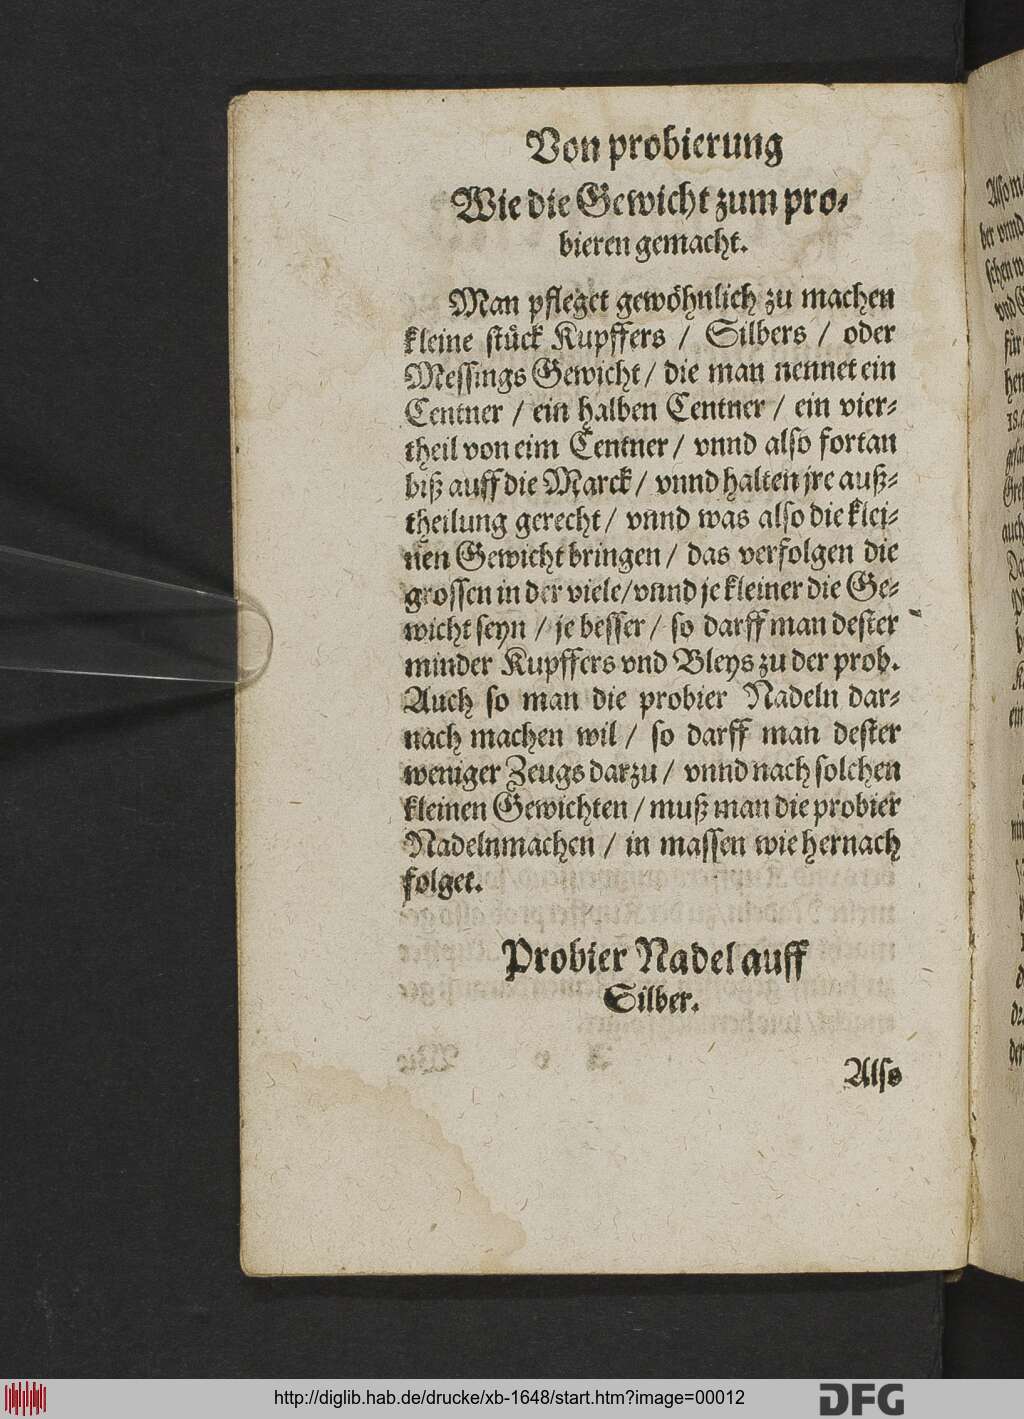 Von probierung
Wie die Gewicht zum pro⸗
bieren gemacht.
Man pfleget gewöhnlich zu machen
kleine stuͤck Kupffers / Silbers / oder
Messings Gewicht / die man nennet ein
Centner / ein halben Centner / ein vier⸗
theil von eim Centner / vnnd also fortan
biß auff die Marck / vnnd halten jre auß⸗
theilung gerecht / vnnd was also die klei⸗
nen Gewicht bringen / das verfolgen die
grossen in der viele / vnnd je kleiner die Ge⸗
wicht seyn / je besser / so darff man dester
minder Kupffers vnd Bleys zu der prob.
Auch so man die probier Nadeln dar⸗
nach machen wil / so darff man dester
weniger Zeugs darzu / vnnd nach solchen
kleinen Gewichten / muß man die probier
Nadelnmachen / in massen wie hernach
folget.
Probier Nadel auff
Silber.
Also
http://diglib.hab.de/drucke/xb-1648/start.htm?image=00012
DFG